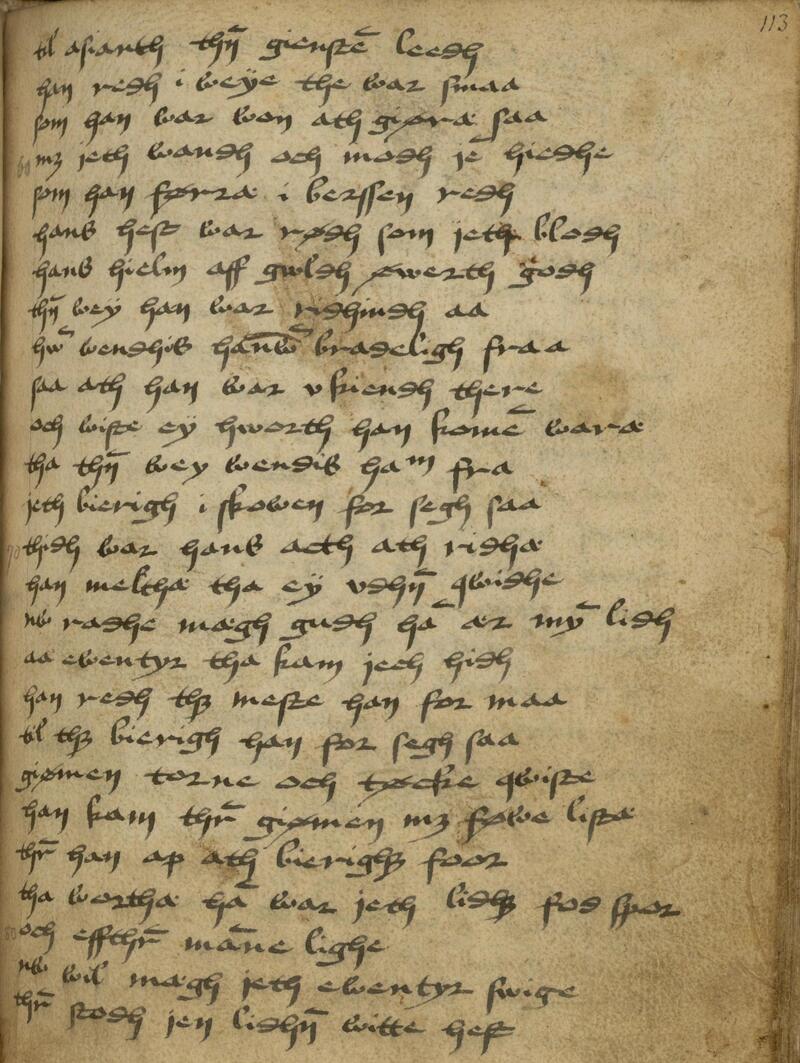 113
til asiarth thn̄ gienstē leedh
han redh i weÿe the war smaa
som han war won ath giøræ saa
mz jeth wandh och modh jē hiedhe
som han førræ i berssen redh
hans hest war rødh som jeth blodh
hans hielm aff gwldh øwerth godh
thn̄ wey han war ridhindh aa
hwͬ wendhis hanwͫ bradeligh fraa
saa ath han war vkiendh there
och wiste ey hworth han komē waræ
tha thn̄ wey wendis haᵐ fra
jeth bierigh i skowen for segh saa
70 thidh war hans acth ath ridhæ
han melthæ tha ey vdhn̄ qwidhe
nw radhe mægh gudh hā ær mȳ lidh
aa ewentyr tha kam jech hidh
han redh thꝫ meste han for maa
til thꝫ bierigh han for segh saa
giømen torne och tøcke qwiste
han kam thr̄ giømen mz føwe listæ
thr̄ han ap ath bierighꝫ foor
tha worthæ hā war jeth lidhꝫ fod spor
80 och effthr̄ māne lighe
nw wil mægh jeth ewentyr swige
thr̄ stodh jen lidhn̄ witte hest